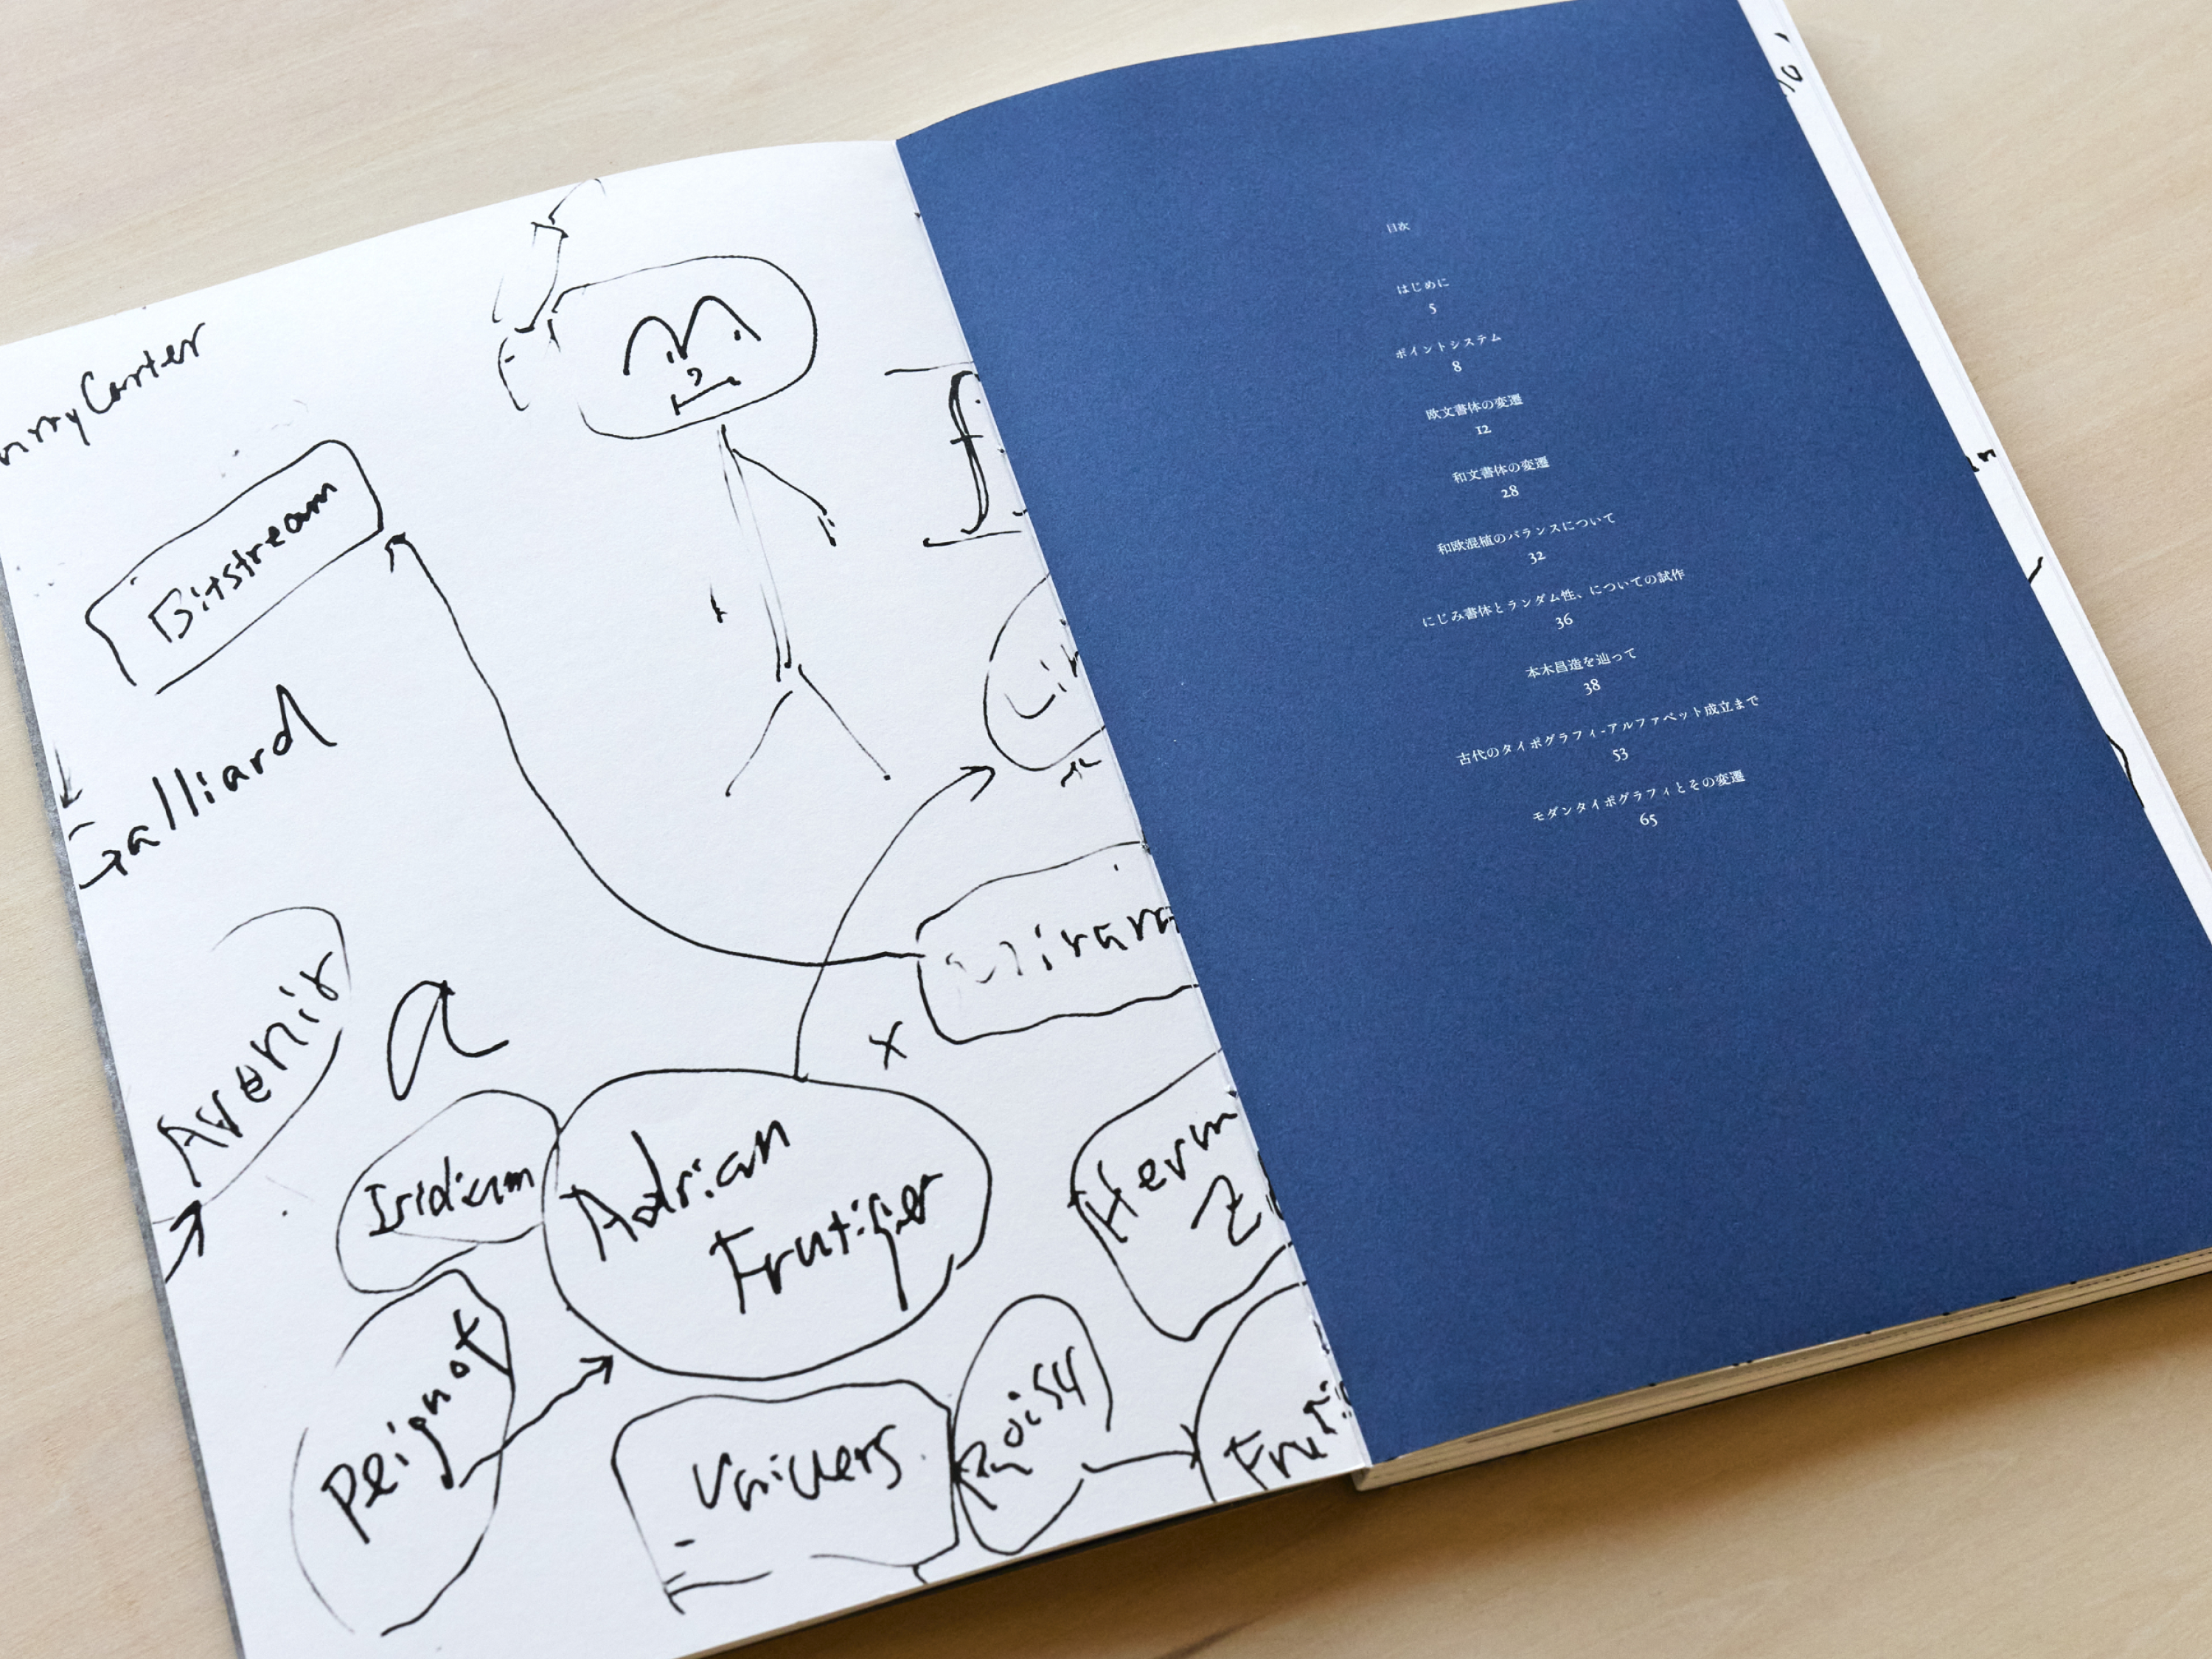 Carter
Bitstream
Galliard
Avenir
a
x
Iridium
Adrian
Frutiger
Herm
Z
Peignot
Univers
Roissy
Fruti
目次
はじめに
5
ポイントシステム
8
欧文書体の変遷
12
和文書体の変遷
28
和欧混植のバランスについて
32
にじみ書体とランダム性、についての試作
36
本木昌造を辿って
38
古代のタイポグラフィ-アルファベット成立まで
53
モダンタイポグラフィとその変遷
65